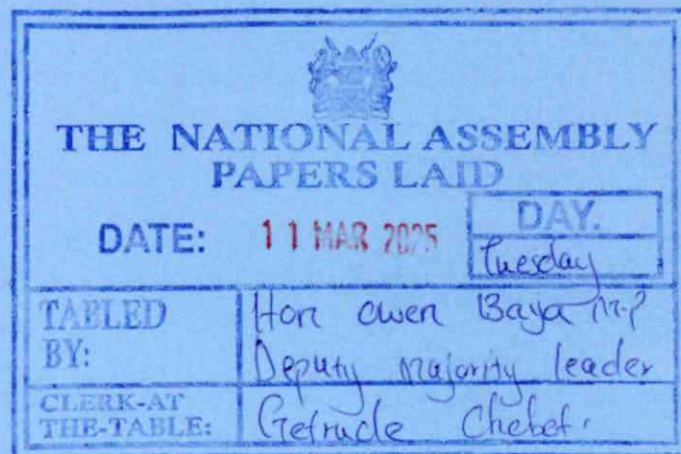 THE NATIONAL ASSEMBLY
PAPERS LAID
DATE: 11 MAR 2025
DAY.
Tuesday
TABLED BY:
Hon Owen Baya M.P
Deputy majority leader
CLERK-AT THE-TABLE:
Getrude Chebet.